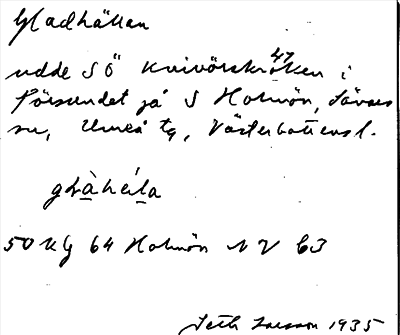 Gladhällan
udde SÖ Knivörskroken i
Försundet på S Holmön, Sävars
sn, Umeå tg, Västerbottens l.
50 UG 64 Holmön NV 63
Seth Larsson 1935